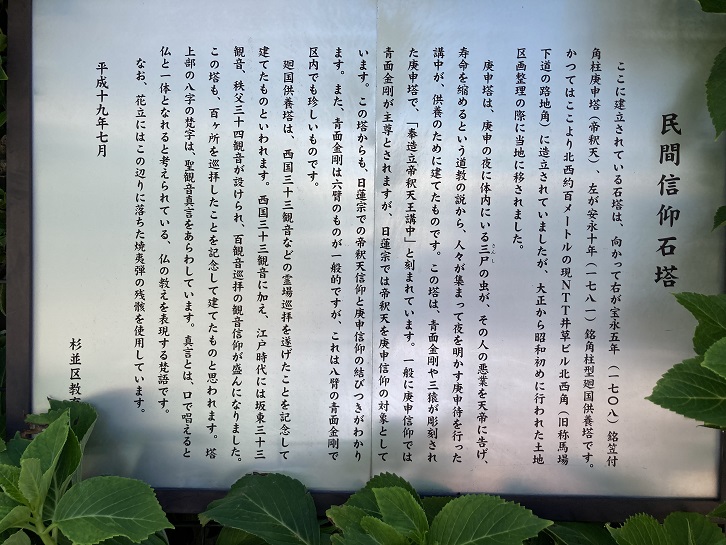 民間信仰石塔
ここに建立されている石塔は、向かって右が宝永五年(一七〇八)銘笠付
角柱庚申塔(帝釈天)、左が安永十年(一七八一)銘角柱型廻国供養塔です。
かつてはここより北西約百メートルの現NTT井草ビル北西角(旧称馬場
下道の路地角)に造立されていましたが、大正から昭和初めに行われた土地
区画整理の際に当地に移されました。
庚申塔は、庚申の夜に体内にいる三尸の虫が、その人の悪業を天帝に告げ、
さんし
寿命を縮めるという道教の説から、人々が集まって夜を明かす庚申待を行った
講中が、供養のために建てたものです。この塔は、青面金剛や三猿が彫刻され
た庚申塔で、「奉造立帝釈天王講中」と刻まれています。一般に庚申信仰では
青面金剛が主尊とされますが、日蓮宗では帝釈天を庚申信仰の対象として
います。この塔からも、日蓮宗での帝釈天信仰と庚申信仰の結びつきがわかり
ます。また、青面金剛は六臂のものが一般的ですが、これは八臂の青面金剛で
区内でも珍しいものです。
廻国供養塔は、西国三十三観音などの霊場巡拝を遂げたことを記念して
建てたものといわれます。西国三十三観音に加え、江戸時代には坂東三十三
観音、秩父三十四観音が設けられ、百観音巡拝の観音信仰が盛んになりました。
この塔も、百ヶ所を巡拝したことを記念して建てたものと思われます。塔
上部の八字の梵字は、聖観音真言をあらわしています。真言とは、口で唱えると
仏と一体となれると考えられている、仏の教えを表現する梵語です。
なお、花立にはこの辺りに落ちた焼夷弾の残骸を使用しています。
平成十九年七月
杉並区教